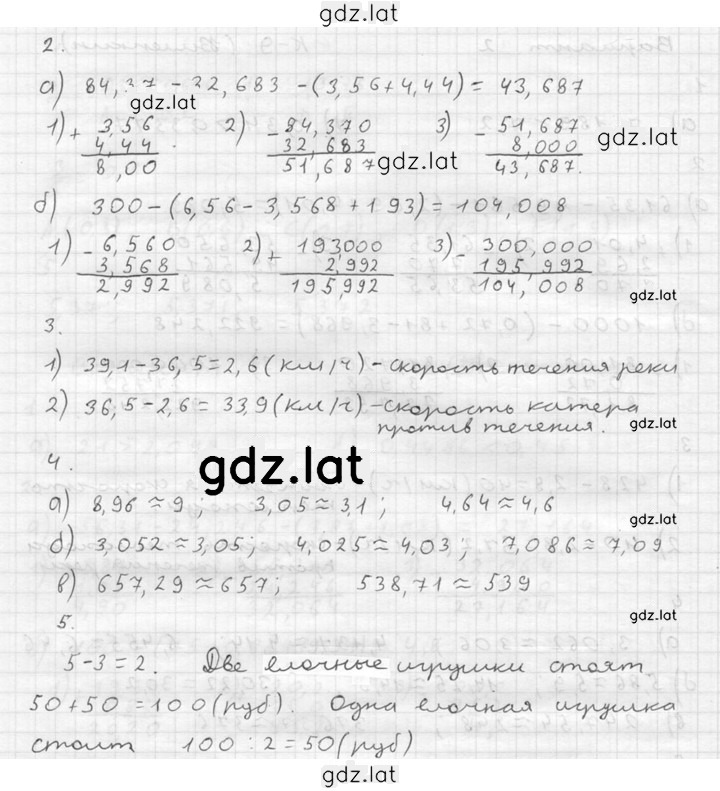 gdz.lat
2.
а) 84,37 - 32,683 - (3,56+4,44) = 43,687
gdz.lat
1) + 3,56 2) - 84,370 3) - 51,687
4,44 32,683 8,000
8,00 51,687 43,687.
gdz.lat gdz.lat
б) 300 - (6,56 - 3,568 + 193) = 104,008
1) - 6,560 2) + 193,000 3) - 300,000
3,568 2,992 195,992
2,992 195,992 104,008
gdz.lat
3.
1) 39,1 - 36,5 = 2,6 (км/ч) - скорость течения реки
2) 36,5 - 2,6 = 33,9 (км/ч) - скорость катера
против течения.
gdz.lat
4.
gdz.lat
а) 8,96 ≈ 9; 3,05 ≈ 3,1; 4,64 ≈ 4,6
gdz.lat
б) 3,052 ≈ 3,05; 4,025 ≈ 4,03; 7,086 ≈ 7,09
в) 657,29 ≈ 657; 538,71 ≈ 539
gdz.lat
5.
5-3=2. Две елочные игрушки стоят
50+50=100 (руб). Одна елочная игрушка
стоит 100:2=50 (руб)
gdz.lat